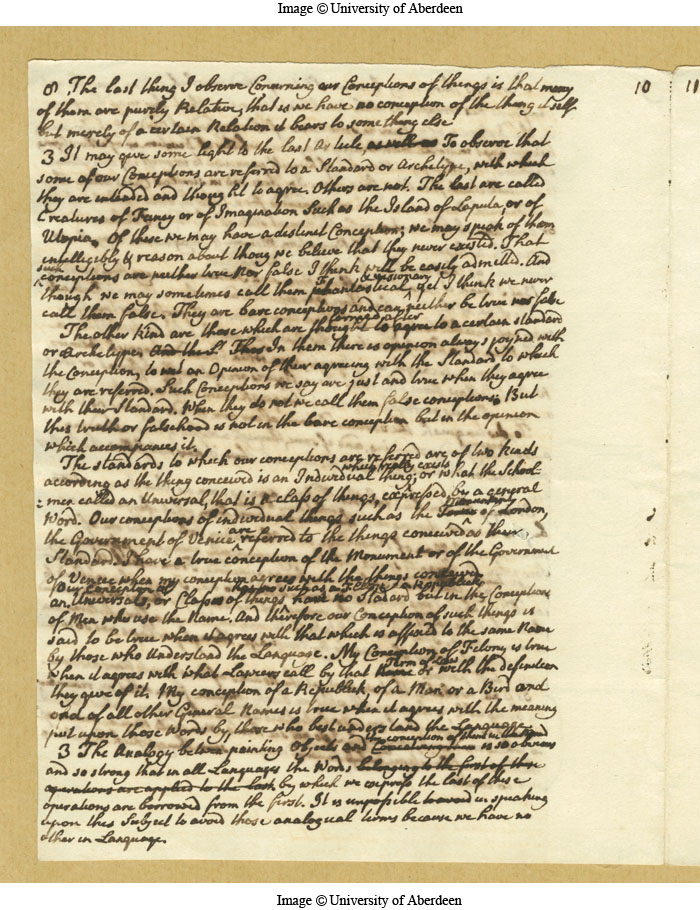 Image © University of Aberdeen
10 11
8 The last thing I observe Concerning our Conceptions of things is that many
of them are purely Relative, that is we have no conception of the thing it self
but merely of a certain Relation it bears to something else
3 It may give some light to the last Article as well as To observe that
some of our Conceptions are referred to a Standard or Archetype, with which
they are intended and thought to agree. Others are not. The last are called
Creatures of Fancy or of Imagination Such as the Island of Laputa or of
Utopia. Of these we may have a distinct Conception; we may speak of them
intelligibly & reason about thoug we believe that they never existed. That
such
conceptions are neither true nor false I think will be easily admitted. And
& visionary
though we may sometimes call them Phantastical, yet I think we never
call them false. They are bare conceptions and can neither be true nor false
correspond
The other kind are those which are thought to agree to a certain standard
or Archetype. And the In them there is opinion always joyned with
the Conception, to an Opinion of their agreeing with the Standard to which
they are referred. Such Conceptions we say are just and true when they agree
with their Standard. When they do not we call them false conceptions; But
this truth or falsehood is not in the bare conception but in the opinion
which accompanies it.
The standards to which our conceptions are referred are of two kinds
which really exists
according as the thing conceived is an Individual thing; or what the School
men called an Universal, that is a class of things, expressed by a general
Monument
Word. Our conceptions of individual things such as the of London,
are
the Government of Venice referred to the things conceived as their
Standard. I have a true conception of the Monument or of the Government
of Venice when my conception agrees with the things conceived.
Our Conceptions of such as a Felony a Republick
an Universals, or Classes of things have no Stadard but in the Conceptions
of Men who use the Name. And therefore our Conception of such things is
said to be true when it agrees with that which is affixed to the same Name
by those who Understand the Language. My Conception of Felony is true
Term of Law
when it agrees with what Lawyers call by that Name or with the definition
they give of it. My conception of a Republick, of a Man or a Bird and
and of all other General Names is true when it agrees with the meaning
put upon those Words by those who best understand the Language.
the conception of them in the Mind
3 The Analogy between painting Objects and is so obvious
and so strong that in all Languages the Words belonging to the first of these
operations are applied to the last by which we express the last of these
operations are borrowed from the first. It is impossible to avoid in speaking
upon this Subject to avoid those analogical terms because we have no
other in Language.
Image © University of Aberdeen